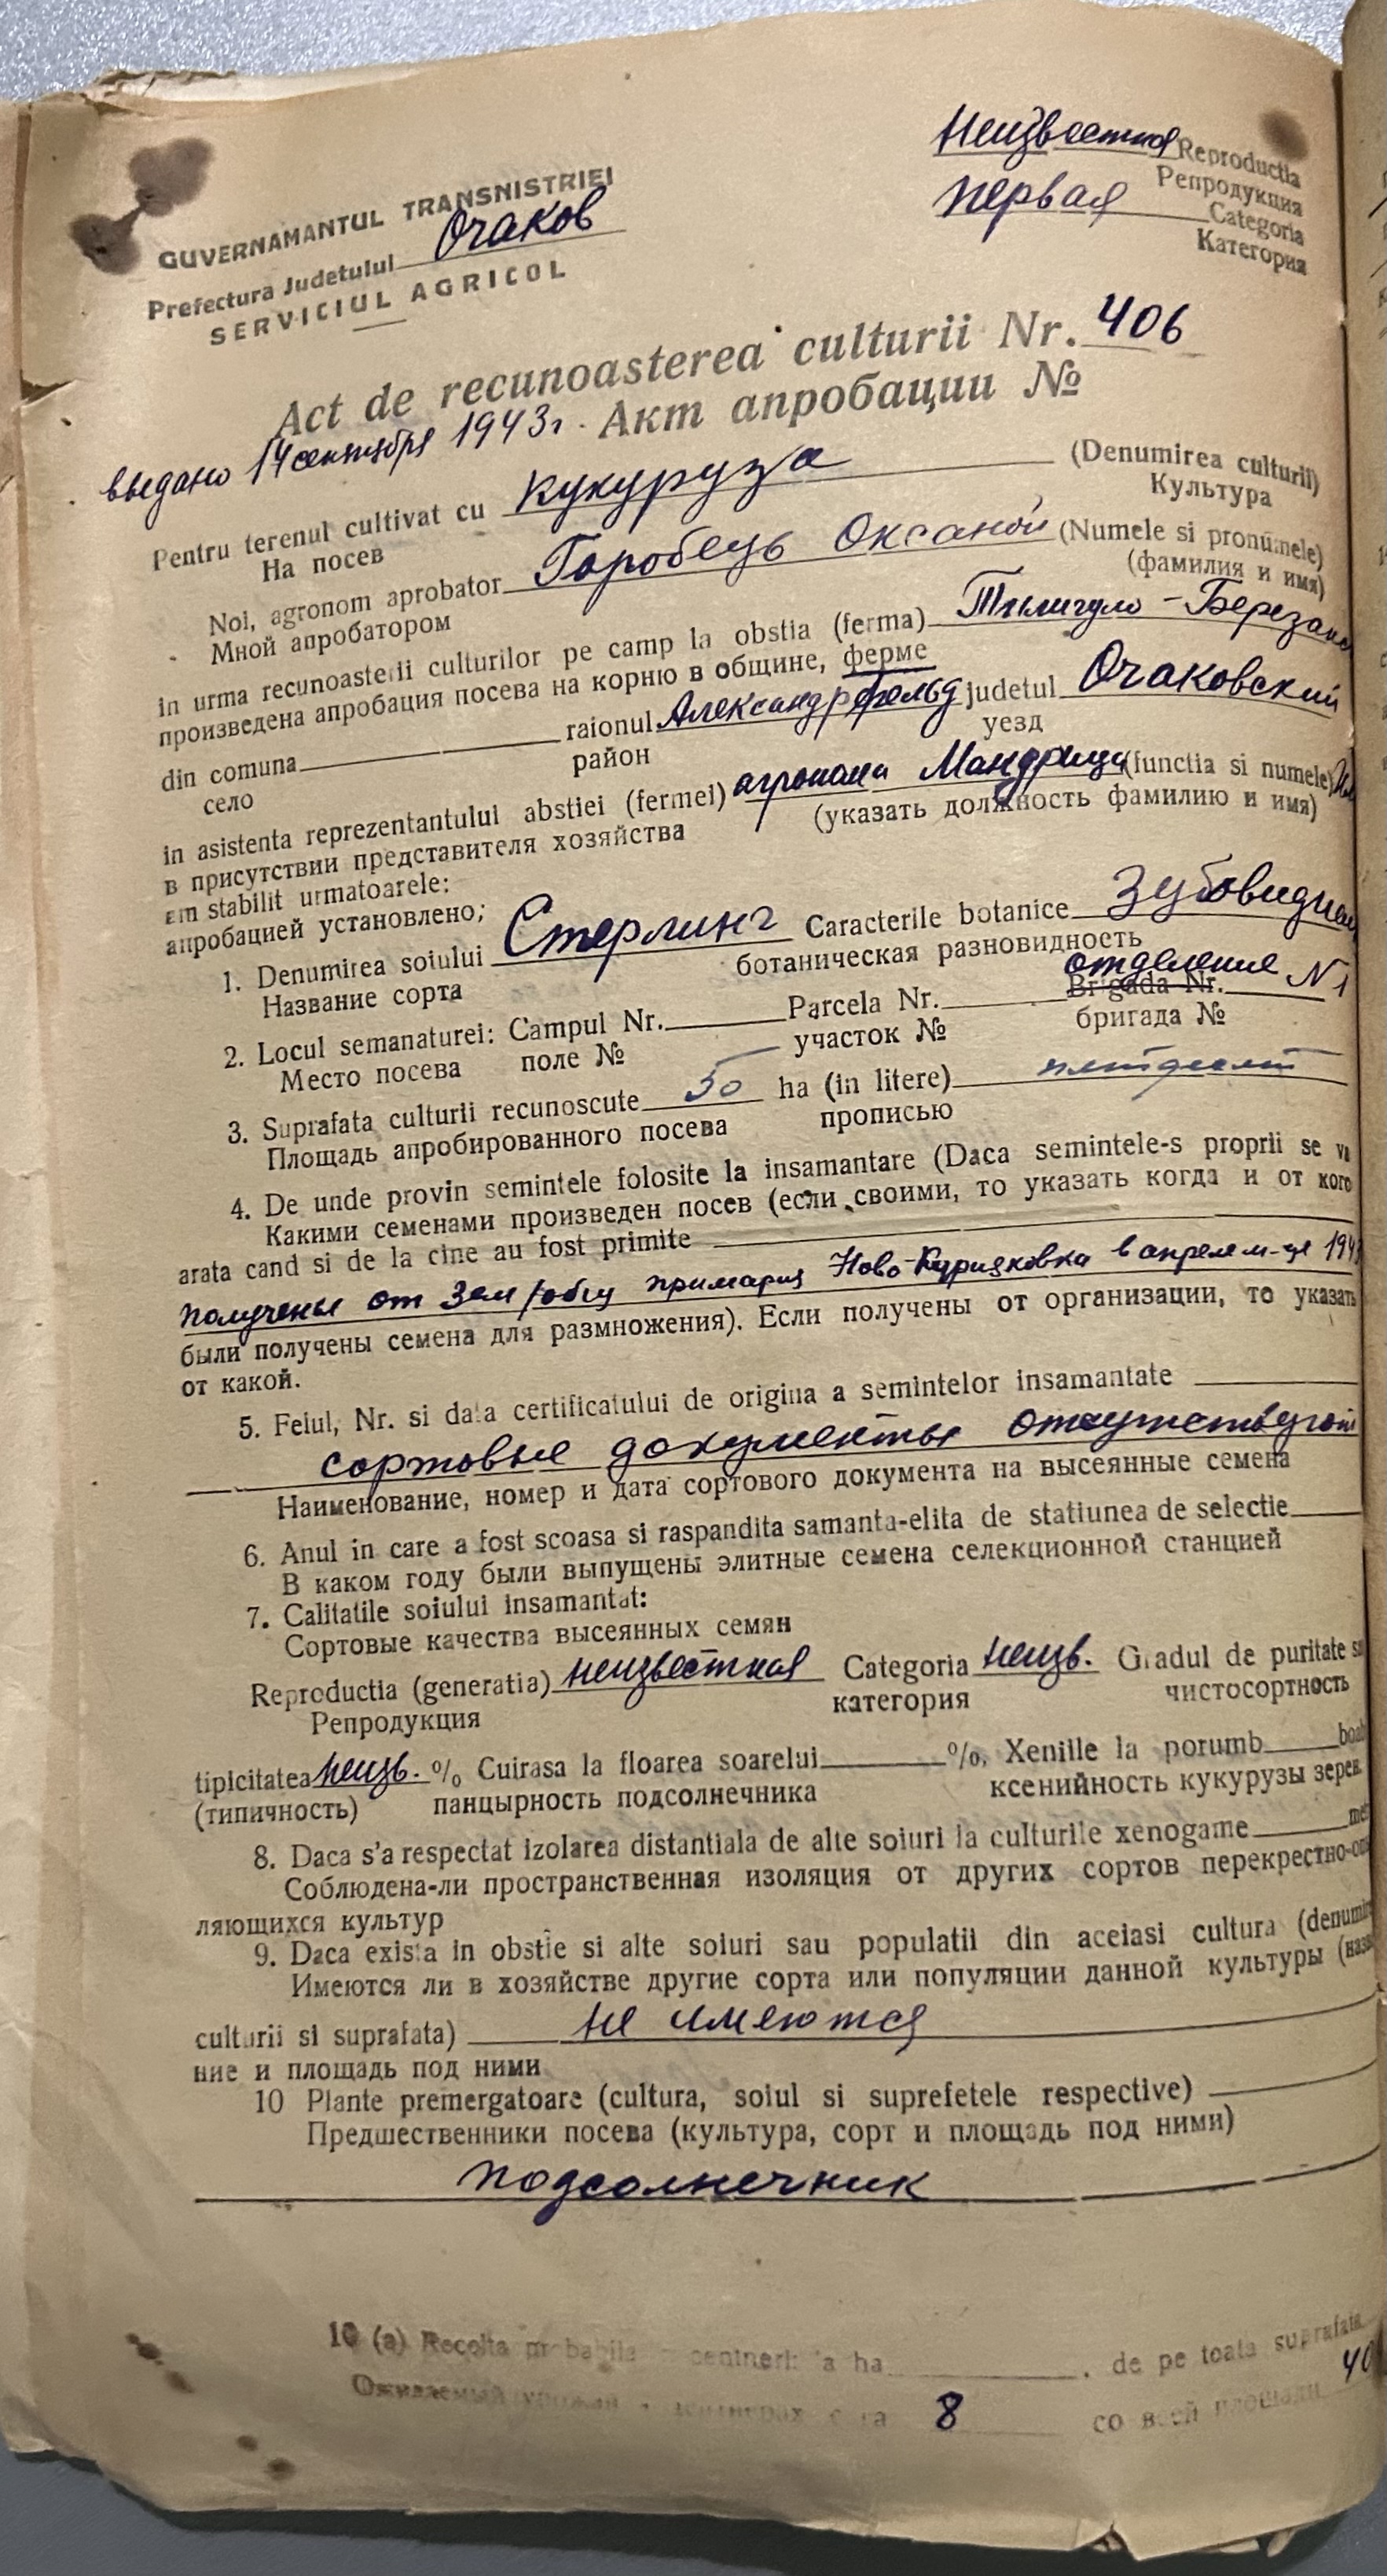 Неизвестная Reproductia
Репродукция
первая Categoria
Категория
GUVERNAMANTUL TRANSNISTRIEI
Prefectura Judetului Очаков
SERVICIUL AGRICOL
Act de recunoasterea culturii Nr. 406
выдано 14 сентября 1943г. Акт апробации №
Pentru terenul cultivat cu кукуруза (Denumirea culturii)
На посев Культура
Noi, agronom aprobator Горобець Оксаной (Numele si pronumele)
Мной апробатором (фамилия и имя)
in urma recunoasterii culturilor pe camp la obstia (ferma) Тилигуло-Березанс
произведена апробация посева на корню в общине, ферме
din comuna raionul Александрфельд judetul Очаковский
село район уезд
in asistenta reprezentantului abstiei (fermei) агронома Мандрица (functia si numele)
в присутствии представителя хозяйства (указать должность фамилию и имя)
am stabilit urmatoarele:
апробацией установлено;
1. Denumirea soiului Стерлинг Caracterile botanice Зубовидная
Название сорта ботаническая разновидность
отделение N1
2. Locul semanaturei: Campul Nr. Parcela Nr. Brigada Nr.
Место посева поле № участок № бригада №
3. Suprafata culturii recunoscute 50 ha (in litere) пятдесят
Площадь апробированного посева прописью
4. De unde provin semintele folosite la insamantare (Daca semintele-s proprii se va
Какими семенами произведен посев (если своими, то указать когда и от кого
arata cand si de la cine au fost primite
получены от Зем/общ примария Ново- в апреле м-це 1943
были получены семена для размножения). Если получены от организации, то указать
от какой.
5. Felul, Nr. si data certificatului de origina a semintelor insamantate
сортовые документы отсутствуют
Наименование, номер и дата сортового документа на высеянные семена
6. Anul in care a fost scoasa si raspandita samanta-elita de statiunea de selectie
В каком году были выпущены элитные семена селекционной станцией
7. Calitatile soiului insamantat:
Сортовые качества высеянных семян
Reproductia (generatia) неизвестная Categoria неизв. Gradul de puritate
Репродукция категория чистосортность
tipicitatea неизв. % Cuirasa la floarea soarelui %, Xeniile la porumb
(типичность) панцырность подсолнечника ксенийность кукурузы зерен
8. Daca s'a respectat izolarea distantiala de alte soiuri la culturile xenogame
Соблюдена-ли пространственная изоляция от других сортов перекрестно-оп
ляющихся культур
9. Daca exista in obstie si alte soiuri sau populatii din aceiasi cultura (denumi
Имеются ли в хозяйстве другие сорта или популяции данной культуры (назв
culturii si suprafata) не имеются
ние и площадь под ними
10 Plante premergatoare (cultura, soiul si suprefetele respective)
Предшественники посева (культура, сорт и площадь под ними)
подсолнечник
10 (a) Recolta probabila centneri: la ha , de pe toata suprafata
Ожидаемый урожай в центнерах с га 8 со всей площади 40